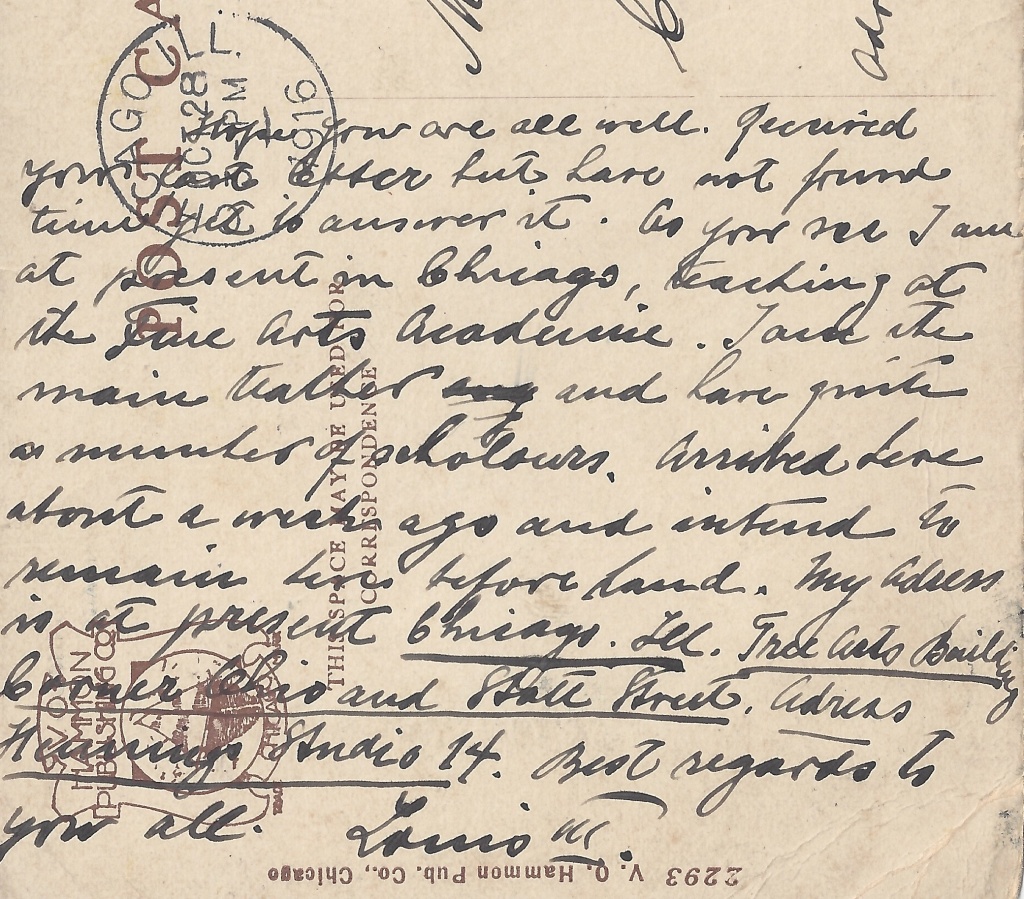 Hope you are all well. Received
your last letter but have not found
time yet to answer it. As you see I am
at present in Chicago, teaching at
the Fine Arts Academie. I am the
main teather and have quite
a number of scholours. Arrived here
about a week ago and intend to
remain here before hand. My Adress
is at present Chicago. Ill. Tree Arts Building
Corner Ohio and State Street. Adress
Studio 14. Best regards to
you all. Louis
POST CA
CHICAGO, ILL.
OCT 28
PM
1916
THIS SPACE MAY BE USED FOR
CORRESPONDENCE
V.O.
HAMMON
PUBLISHING CO
2293 V. O. Hammon Pub. Co., Chicago